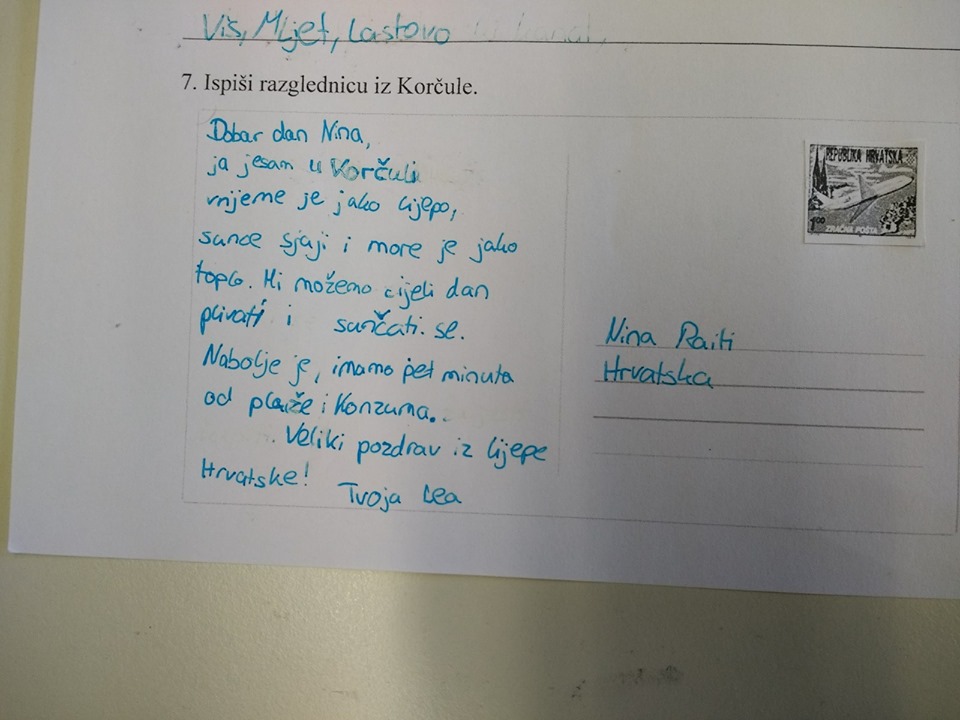 Viš, Mljet, Lastovo
7. Ispiši razglednicu iz Korčule.
Dobar dan Nina,
ja jesam u Korčuli
vrijeme je jako lijepo,
sunce sjaji i more je jako
toplo. Mi možemo cijeli dan
plivati i sunčati se.
Nabolje je, imamo pet minuta
od plaže i Konzuma.
Veliki pozdrav iz lijepe
Hrvatske!
Tvoja Lea
REPUBLIKA HRVATSKA
1,00
ZRAČNA POŠTA
Nina Raiti
Hrvatska